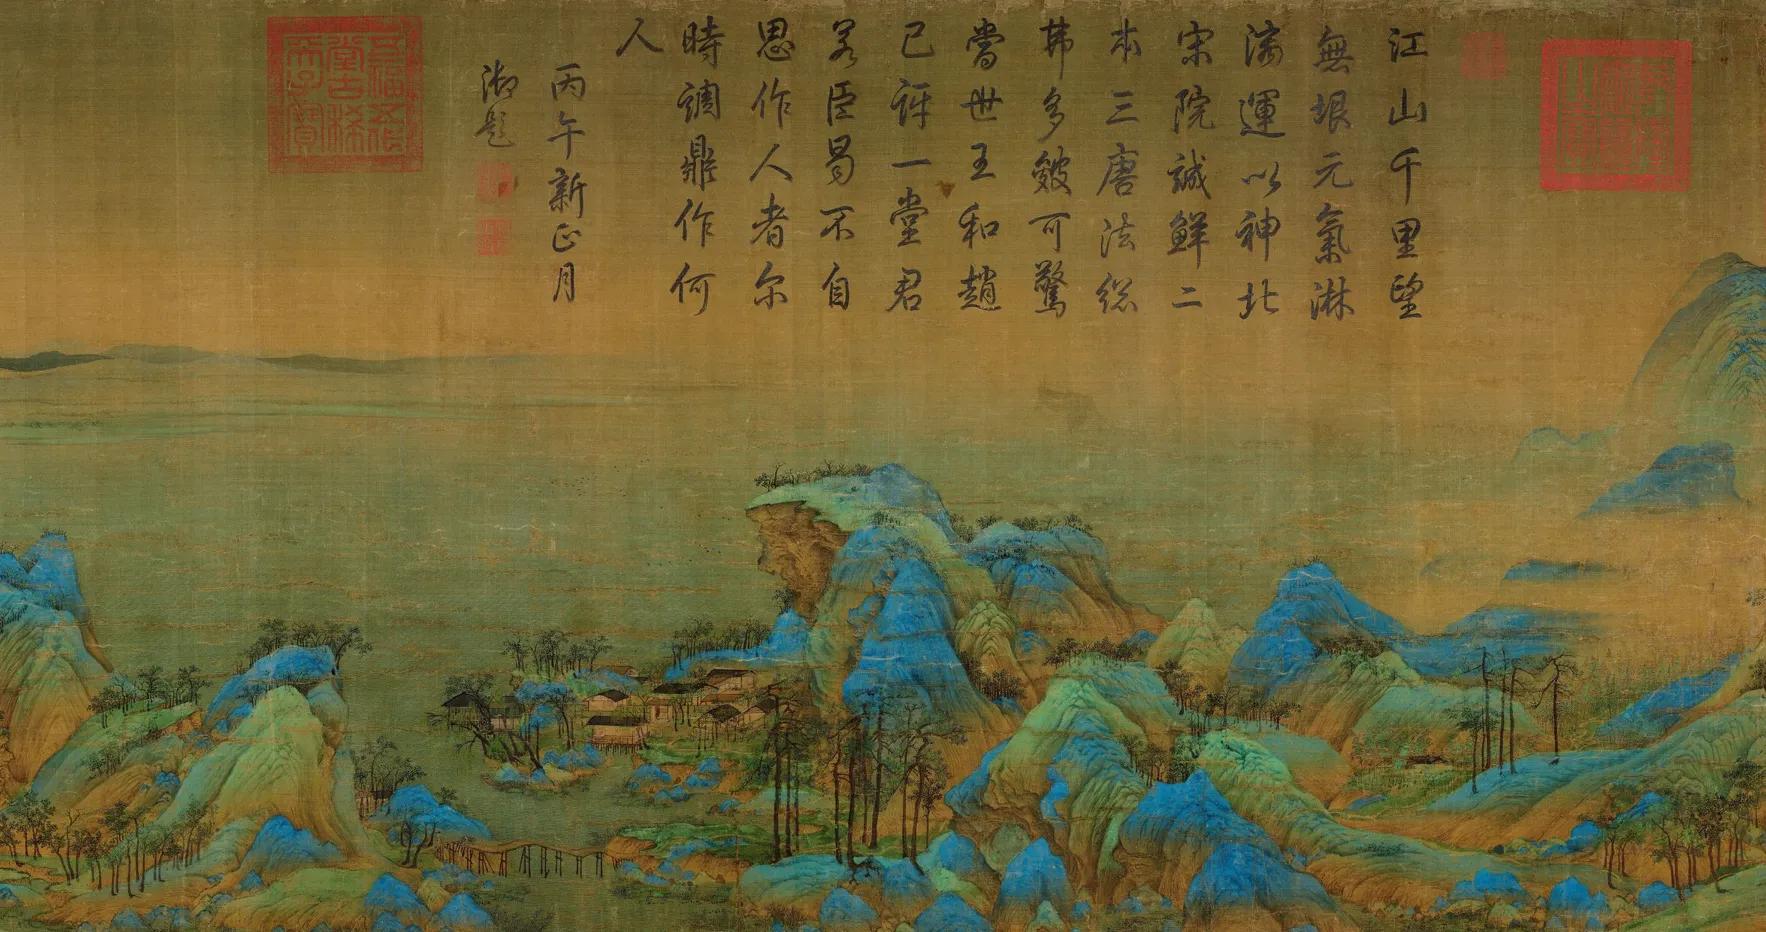 江山千里望
無垠元氣淋
漓運以神北
宋院誠鮮二
本三唐法総
弗多皴可驚
當世王和趙
已訝一堂君
若臣曷不自
思作人者尔
時調鼎作何
人
丙午新正月
御題